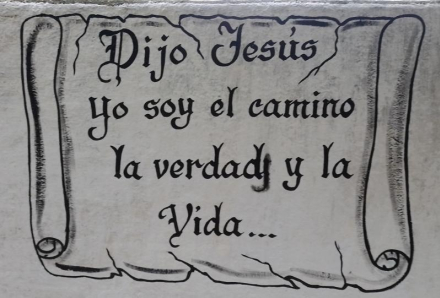 Dijo Jesús
yo soy el camino
la verdad y la
Vida...